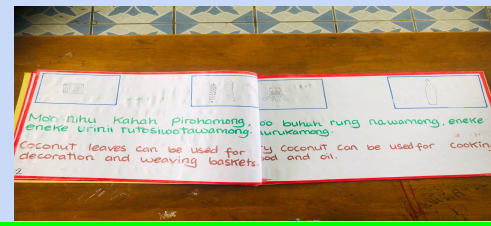 Mon nihu Kahah Pirohamong,
eneke urinii rutosiwotawamong.
Coconut leaves can be used for
decoration and weaving baskets.
2
oo buhuh rung nawamong, eneke
urukamong.
ry coconut can be used for cookin
od and oil.